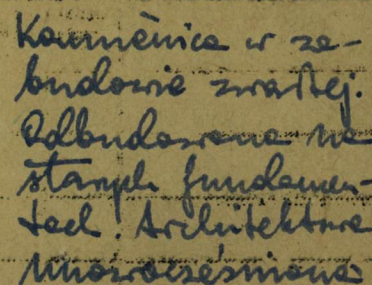 Kamienica w za-
budowie zwartej.
Odbudowana na
starych fundamen-
tach. Architektura
unowocześniona